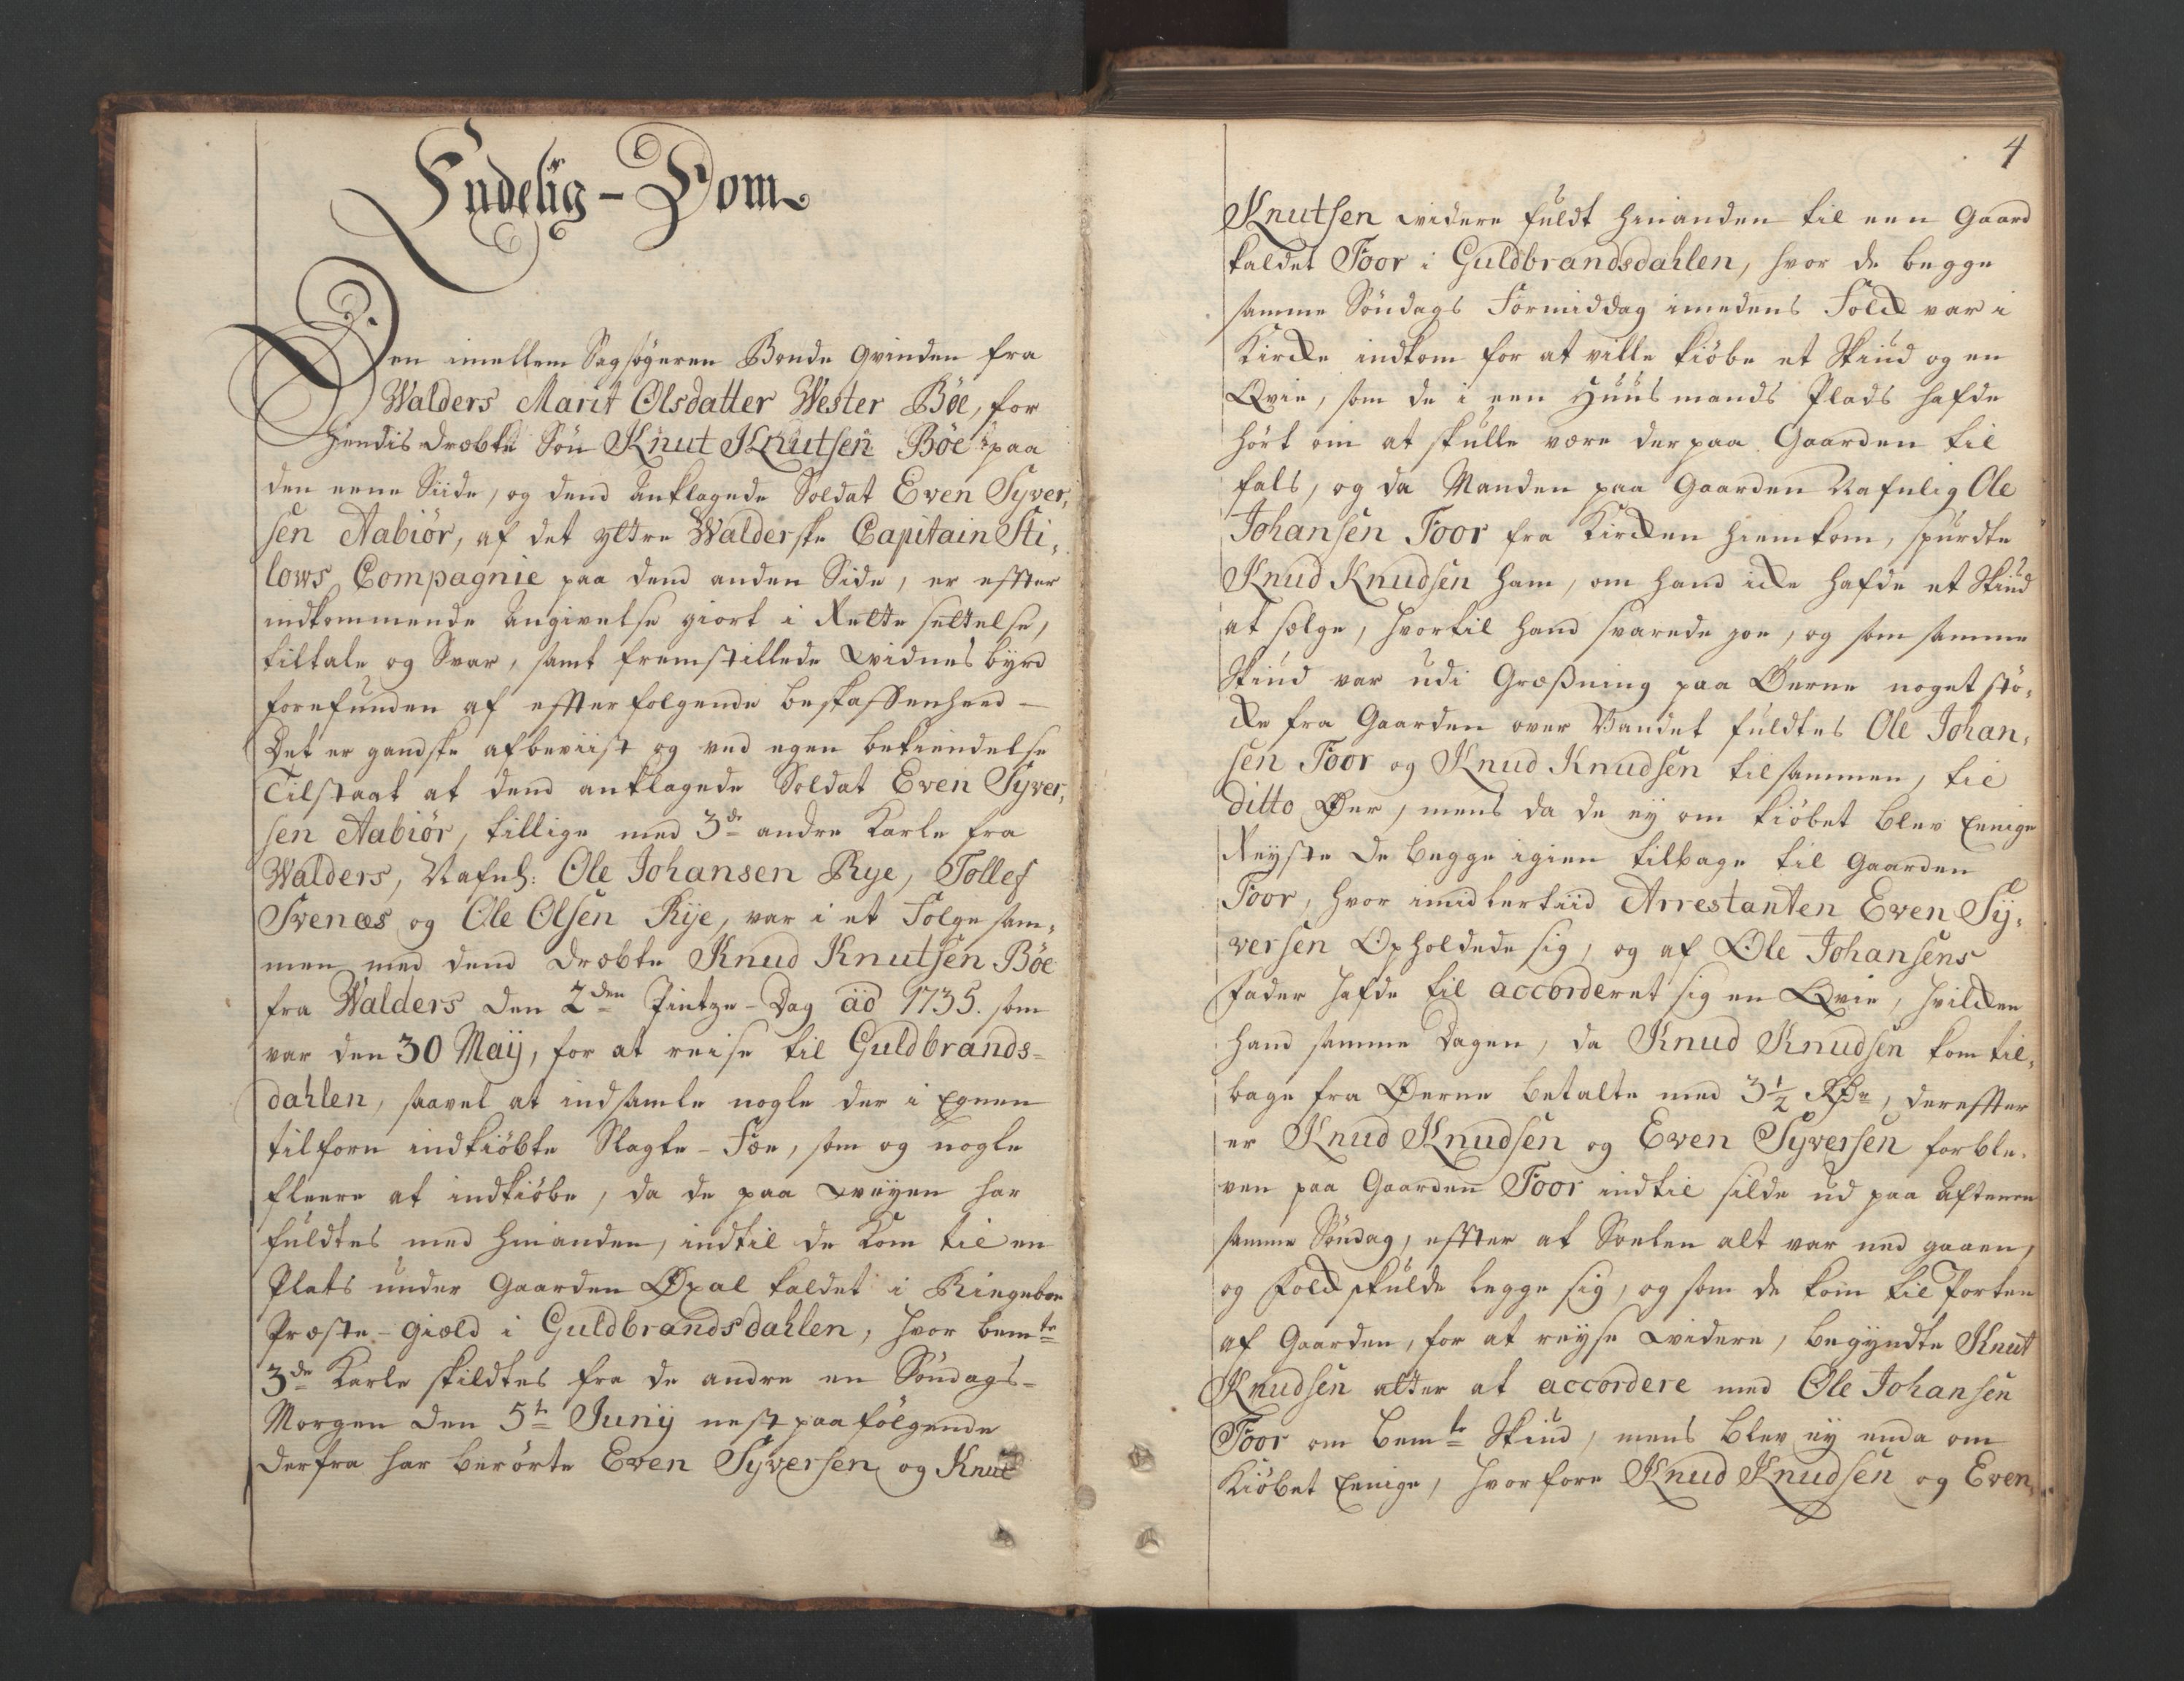 Endelig-Dom
Den imellem Sagsøgeren Bonde Qvinden fra
Walders Marit Olsdatter Wester Bøe, for
hendis dræbte Søn Knut Knutsen Bøe paa
den eene Siide, og dend Anklagede Soldat Even Syver,
sen Aabiør, af det yttre Walderske Capitain Sti,
lows Compagnie paa dend anden Side, er effter
indkommende Angivelse giort i Rette settelse,
tiltale og Svar, samt fremstillede Widnesbyrd
forefunden af effterfølgende beskaffenheed –
Det er gandske afbeviist og ved egen bekiendelse
Tilstaat at dend anklagede Soldat Even Syver,
sen Aabiør, tillige med 3de andre Karle fra
Walders, Nafnl: Ole Johansen Rye, Tollef
Svenæs og Ole Olsen Rije, var i et Følge sam,
men med dend dræbte Knud Knutsen Bøe
fra Walders den 2den Pintze-Dag ao 1735. som
var den 30 Maij, for at reise til Guldbrands=
dahlen, saavel at indsamle nogle der i Egnen
tilforn indkiøbte Slagte-Fæe, som og nogle
fleere at indkiøbe, da de paa Weyen har
fuldtes med hinanden, indtil de kom til en
Plats under Gaarden Øxal kaldet i Ringeboe
Præste-giæld i Guldbrandsdahlen, hvor bemte
3de Karle skildtes fra de andre en Søndags=
Morgen den 5te Junij nest paafølgende
derfra har berørte Even Syversen og Knut
4
Knutsen widere fuldt hinanden til een Gaard
kaldet Foor i Guldbrandsdahlen, hvor de begge
samme Søndags Formiddag imedens Folck var i
Kircke indkom for at ville kiøbe et Skiud og en
Qvie, som de i een Huusmands Plads hafde
hørt om at skulle være der paa Gaarden til
fals, og da Manden paa Gaarden Nafnlig Ole
Johansen Foor fra Kircken hiemkom, spurdte
Knud Knudsen ham, om hand icke hafde et Skiud
at sælge, hvortil hand svarede joe, og som samme
Skiud var udi Græsning paa Øerne noget stø,
cke fra Gaarden over Vandet fuldtes Ole Johan,
sen Foor og Knud Knudsen tilsammen, til
ditto Øer, mens da de ey om kiøbet blev Eenige
Reyste de begge igien tilbage til Gaarden
Foor, hvor imidlertiid Arrestanten Even Sÿ,
versen Opholdede sig, og af Ole Johansens
Fader hafde til accorderet sig en Qvie, hvilcken
hand samme Dagen, da Knud Knudsen kom til,
bage fra Øerne betalte med 3½ Rdr, dereffter
er Knud Knudsen og Even Syversen forble,
ven paa Gaarden Foor indtil silde ud paa Aftenen
samme Søndag, effter at Soelen alt var ned gaaen,
og Folck skulde legge sig, og som de kom til Porten
af Gaarden, for at reyse widere, begyndte Knut
Knudsen atter at accordere med Ole Johansen
Foor om bemte Skiud, mens blev ey enda om
Kiøbet Eenige, hvorfore Knud Knudsen og Even,